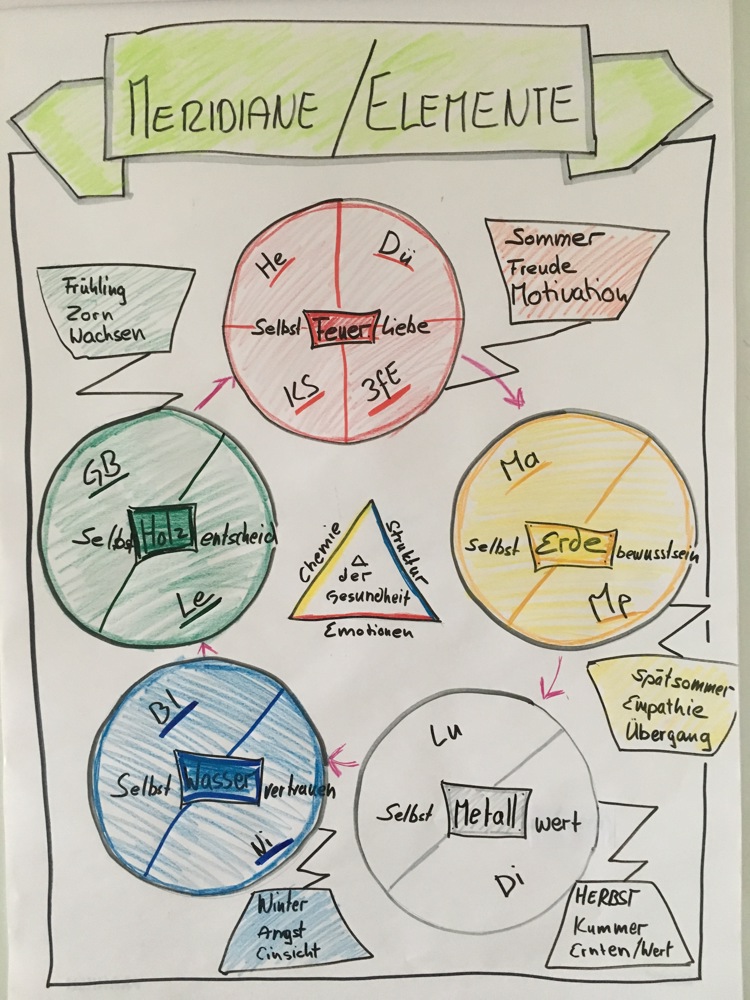 MERIDIANE / ELEMENTE
Frühling
Zorn
Wachsen
He
Dü
Selbst Feuer Liebe
KS
3fE
Sommer
Freude
Motivation
GB
Selbst Holz entscheid
Le
Chemie
Struktur
△
der
Gesundheit
Emotionen
Ma
Selbst Erde bewusstsein
Mp
Spätsommer
Empathie
Übergang
Bl
Selbst Wasser vertrauen
Ni
Winter
Angst
Einsicht
Lu
Selbst Metall wert
Di
HERBST
Kummer
Ernten/Wert